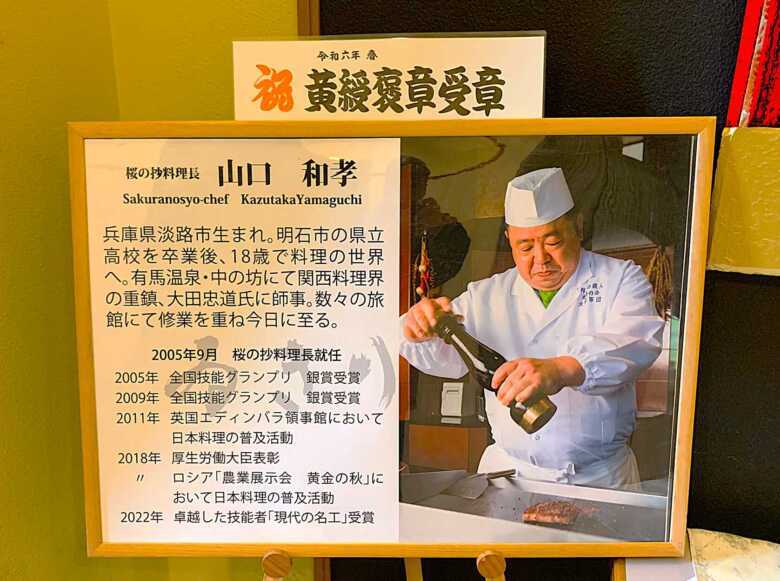 令和六年 春
祝 黄綬褒章受章
桜の抄料理長 山口 和孝
Sakuranosyo-chef KazutakaYamaguchi
兵庫県淡路市生まれ。明石市の県立
高校を卒業後、18歳で料理の世界
へ。有馬温泉・中の坊にて関西料理界
の重鎮、大田忠道氏に師事。数々の旅
館にて修業を重ね今日に至る。
2005年9月 桜の抄料理長就任
2005年 全国技能グランプリ 銀賞受賞
2009年 全国技能グランプリ 銀賞受賞
2011年 英国エディンバラ領事館において
日本料理の普及活動
2018年 厚生労働大臣表彰
〃 ロシア「農業展示会 黄金の秋」に
おいて日本料理の普及活動
2022年 卓越した技能者「現代の名工」受賞